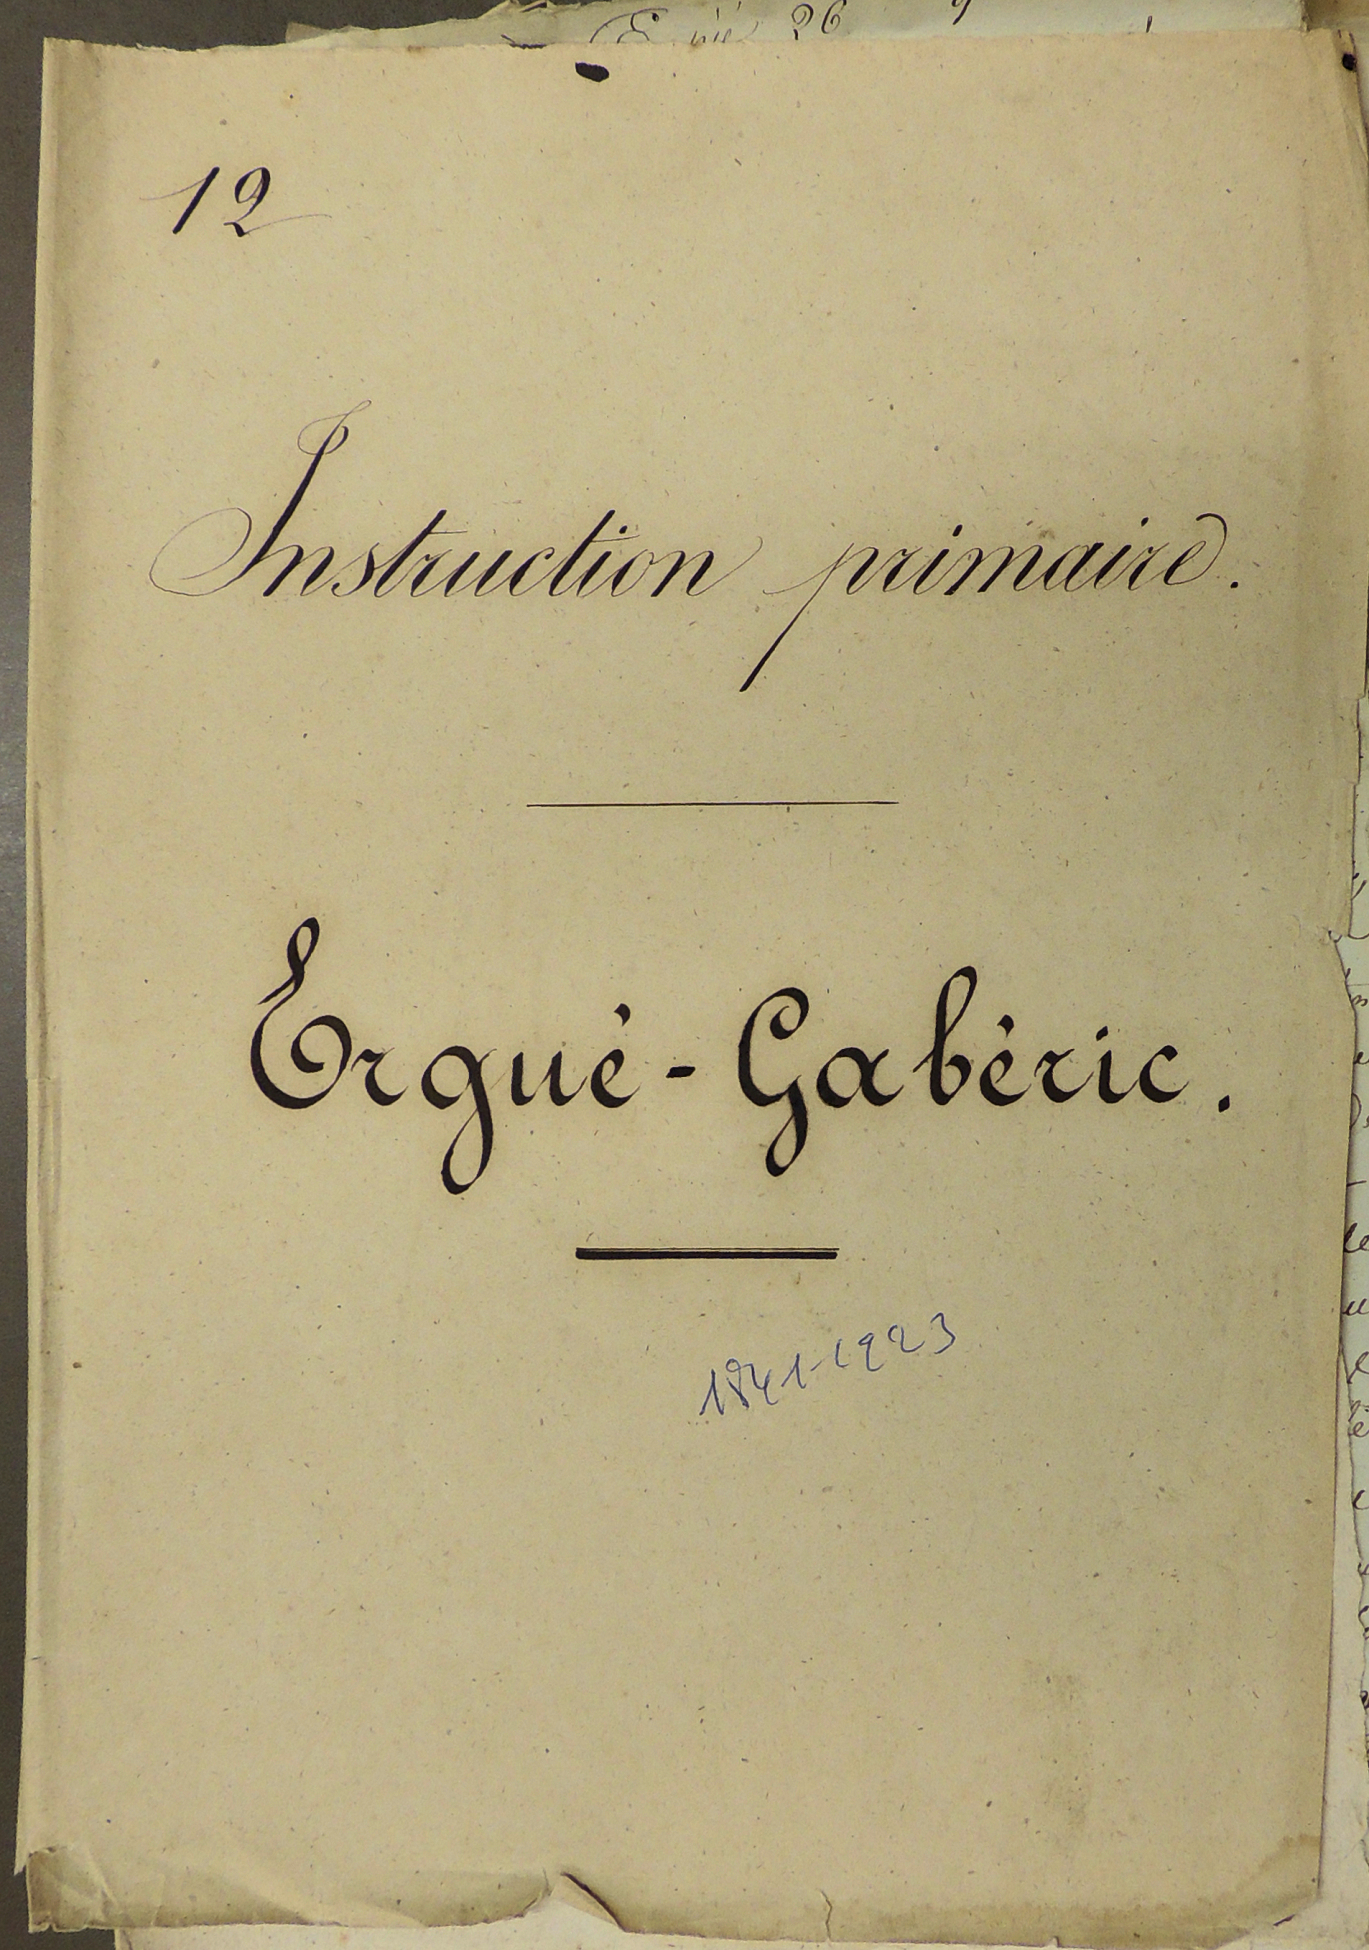 26
12
Instruction primaire.
Ergué-Gabéric.
1841-1923